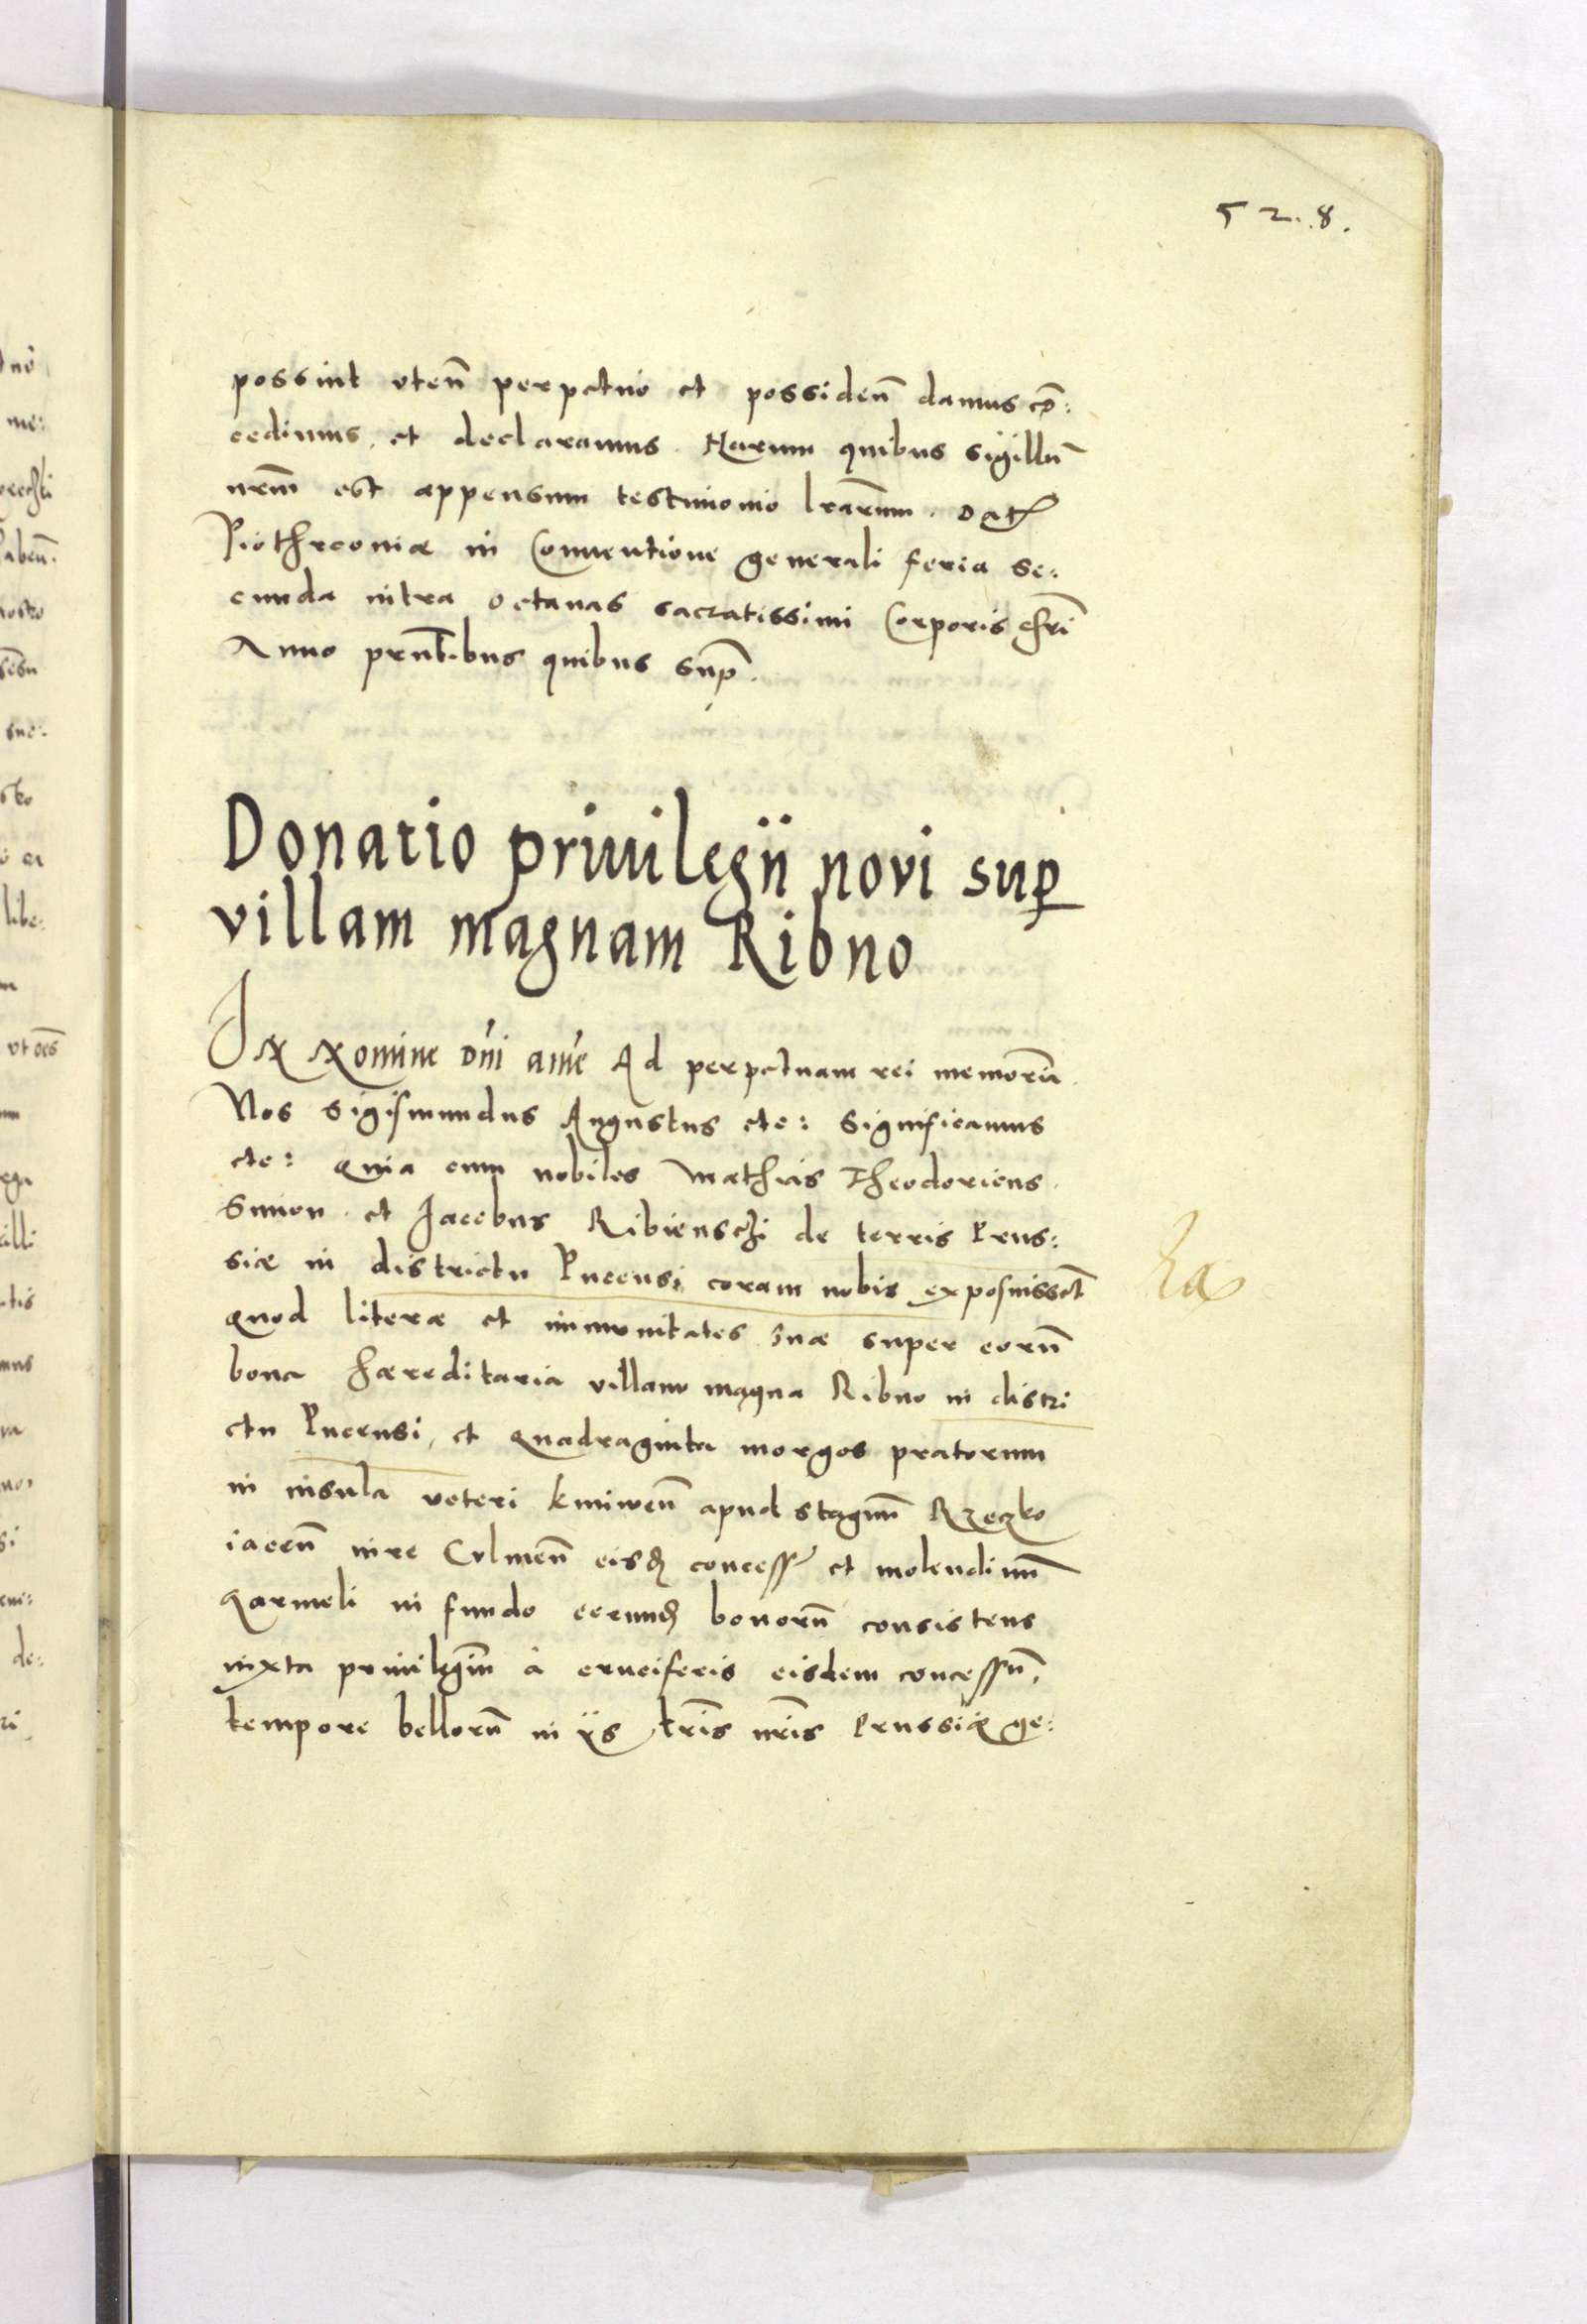 52.8.
possint vten̄ perpetuo et possiden̄ damus cō:
cedimus et declaramus. Harum quibus sigillū
nr̄m est appensum testimonio lr̄arum. Dat
Piothrcouiæ in Conuentione generali feria se:
cunda intra octauas sacratissimi Corporis chr̄i
Anno pr̄ntibus quibus sup̄.
Donatio priuilegii novi super
villam magnam Ribno
In Nomine Dn̄i amē Ad perpetuam rei memoriā.
Nos Sigismundus Augustus etc: Significamus
etc: Quia cum nobiles Mathis Theodoricus
Simon et Jacobus Ribienschi de terris Prus:
siæ in districtu Pucensi coram nobis exposuissēt
quod literæ et immunitates suæ super eorū
bona hæreditaria villam magna Ribno in distri
ctu Pucensi, et quadraginta morgos pratorum
in insula veteri kmiwen̄ apud stagnū Rzeczko
iacen̄ iure Culmen̄ eisd concess et molendinū
Karmeli in fundo eorund bonorū consistens
iuxta priuilegiū à cruciferis eisdem concessū,
tempore bellorū in ijs tr̄is nr̄is Prussiæ ge: